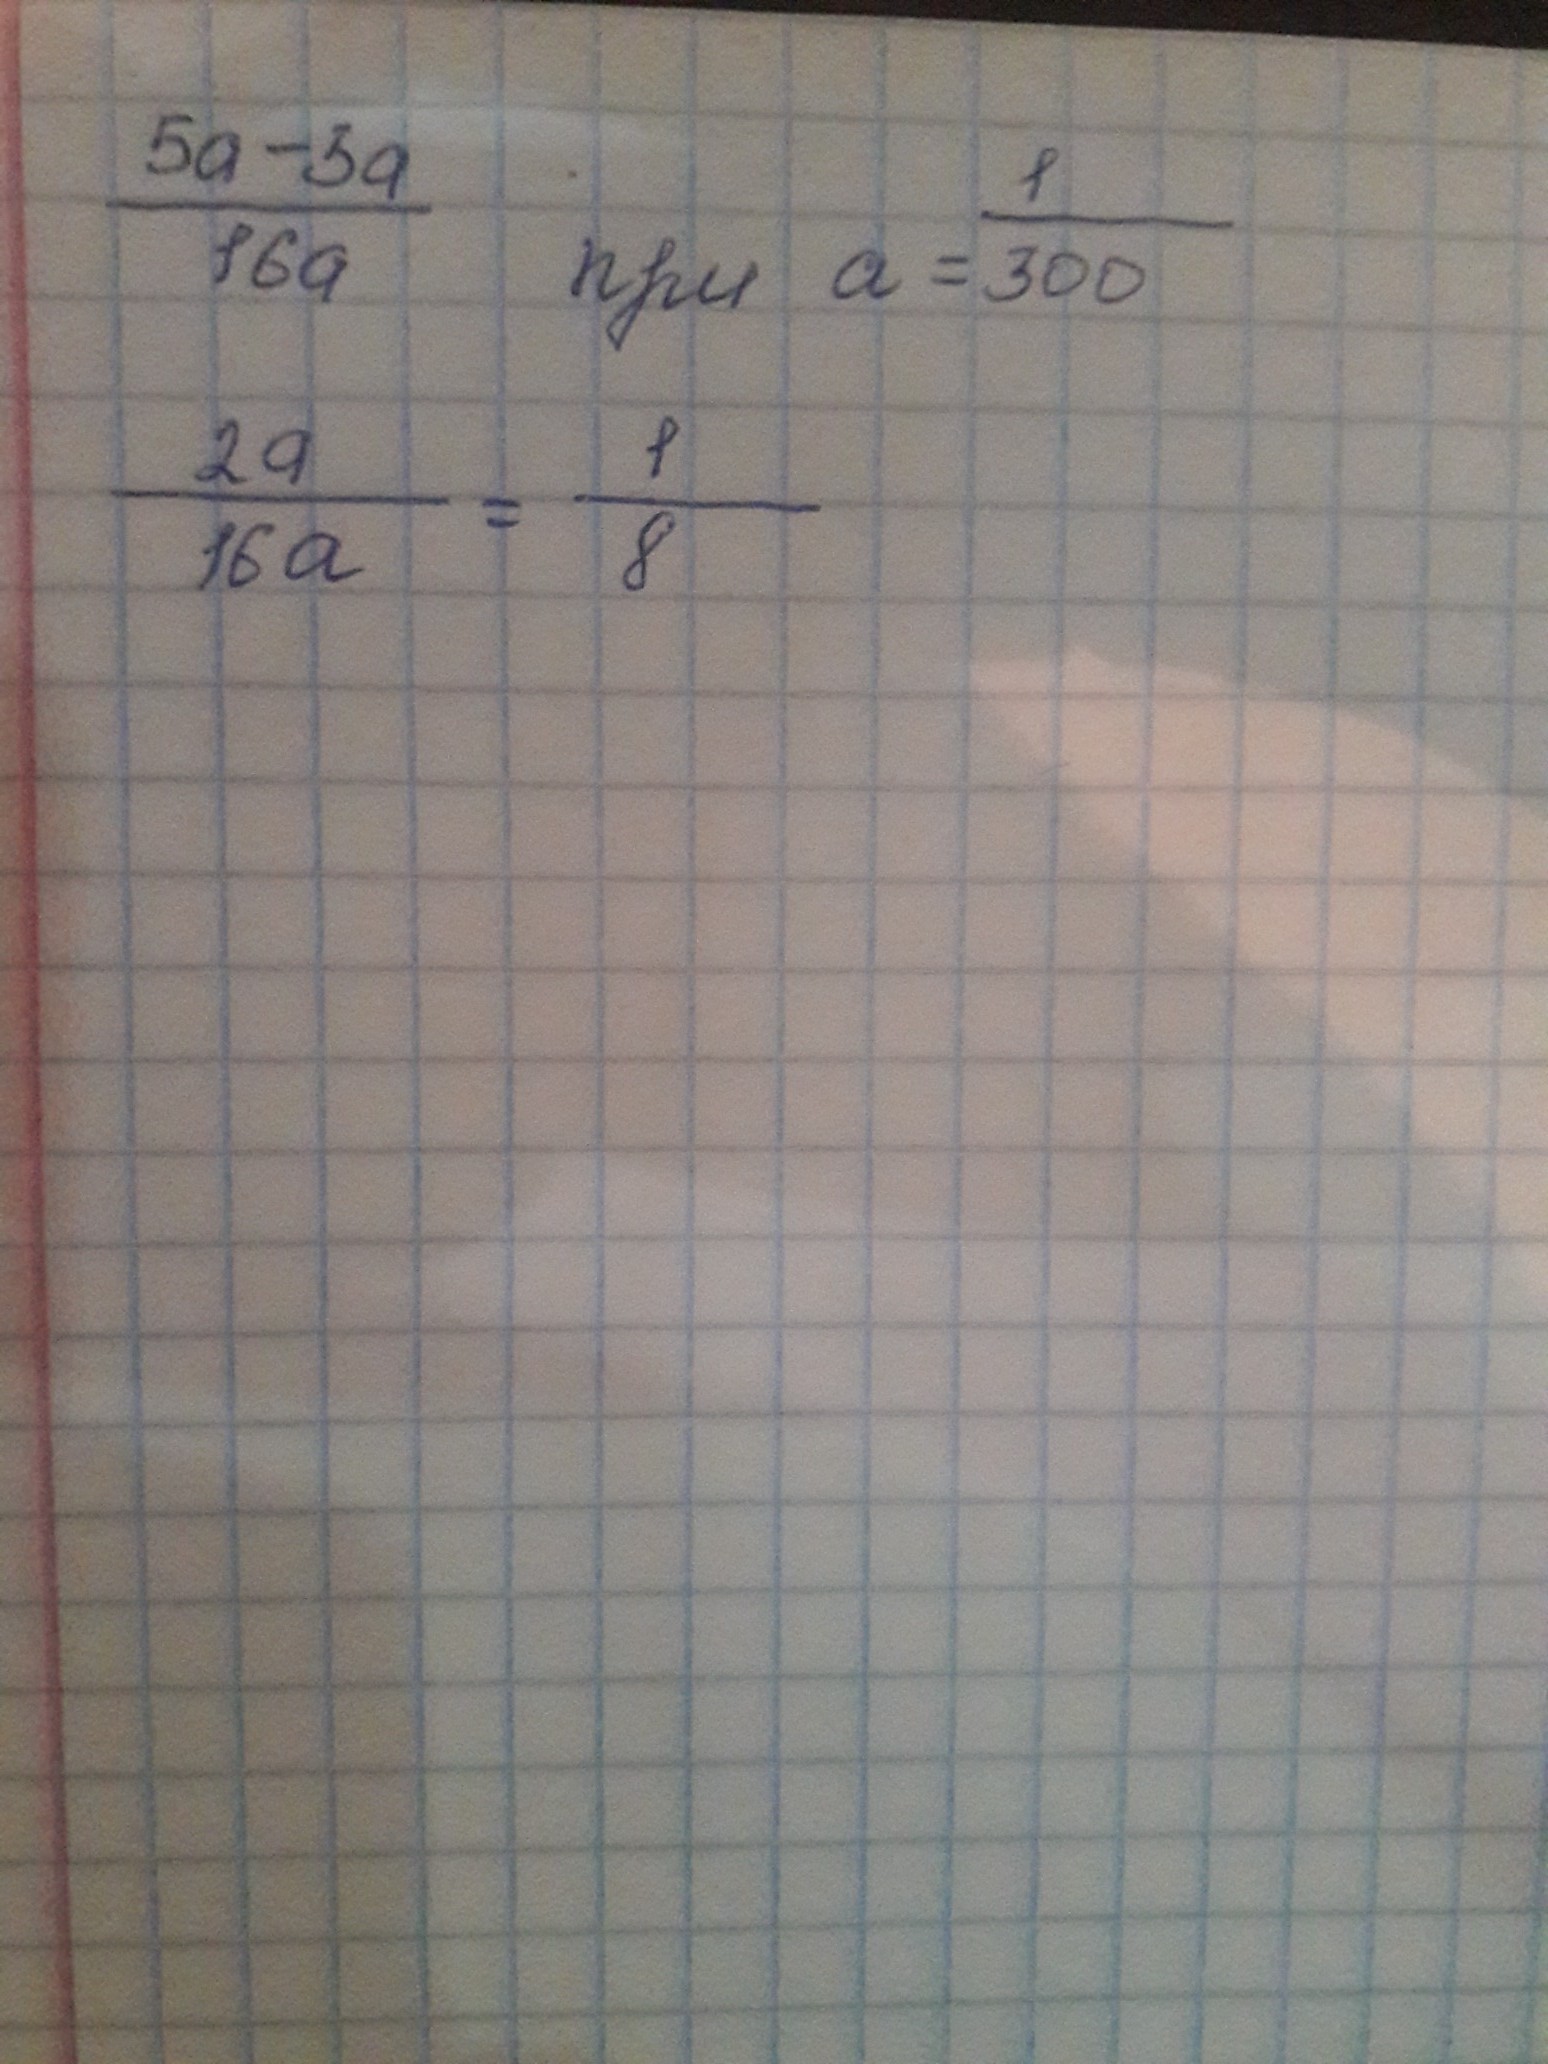 5a-3a/16a при a = 1/300
2a/16a = 1/8